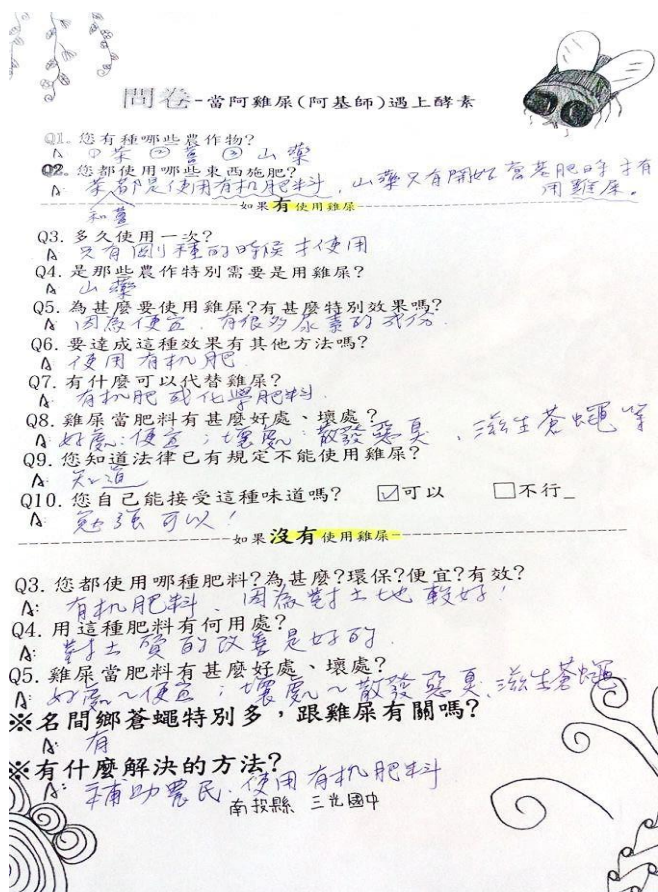 問卷-當阿雞屎(阿基師)遇上酵素
Q1。您有種哪些農作物?
A ①茶 ②薑 ③山藥
Q2。您都使用哪些東西施肥?
A 茶和薑都是使用有机肥料,山藥只有開始當基肥時才有用雞屎。
如果有使用雞屎
Q3. 多久使用一次?
A 只有剛種的時侯才使用
Q4. 是那些農作特別需要是用雞屎?
A 山藥
Q5. 為甚麼要使用雞屎?有甚麼特別效果嗎?
A 因為便宜.有很多尿素的成份.
Q6. 要達成這種效果有其他方法嗎?
A 使用有机肥
Q7. 有什麼可以代替雞屎?
A 有机肥或化學肥料.
Q8. 雞屎當肥料有甚麼好處、壞處?
A:好處:便宜;壞處:散發惡臭、滋生苍蠅等
Q9. 您知道法律已有規定不能使用雞屎?
A 知道
Q10. 您自己能接受這種味道嗎? ☑可以 □不行_
A: 勉強可以!
如果沒有使用雞屎
Q3. 您都使用哪種肥料?為甚麼?環保?便宜?有效?
A: 有机肥料、因為對土地較好!
Q4. 用這種肥料有何用處?
A: 對土質的改善是好的.
Q5. 雞屎當肥料有甚麼好處、壞處?
A: 好處~便宜;壞處~散發惡臭、滋生苍蠅
※名間鄉蒼蠅特別多,跟雞屎有關嗎?
A: 有
※有什麼解決的方法?
A: 補助農民.使用有机肥料
南投縣 三光國中